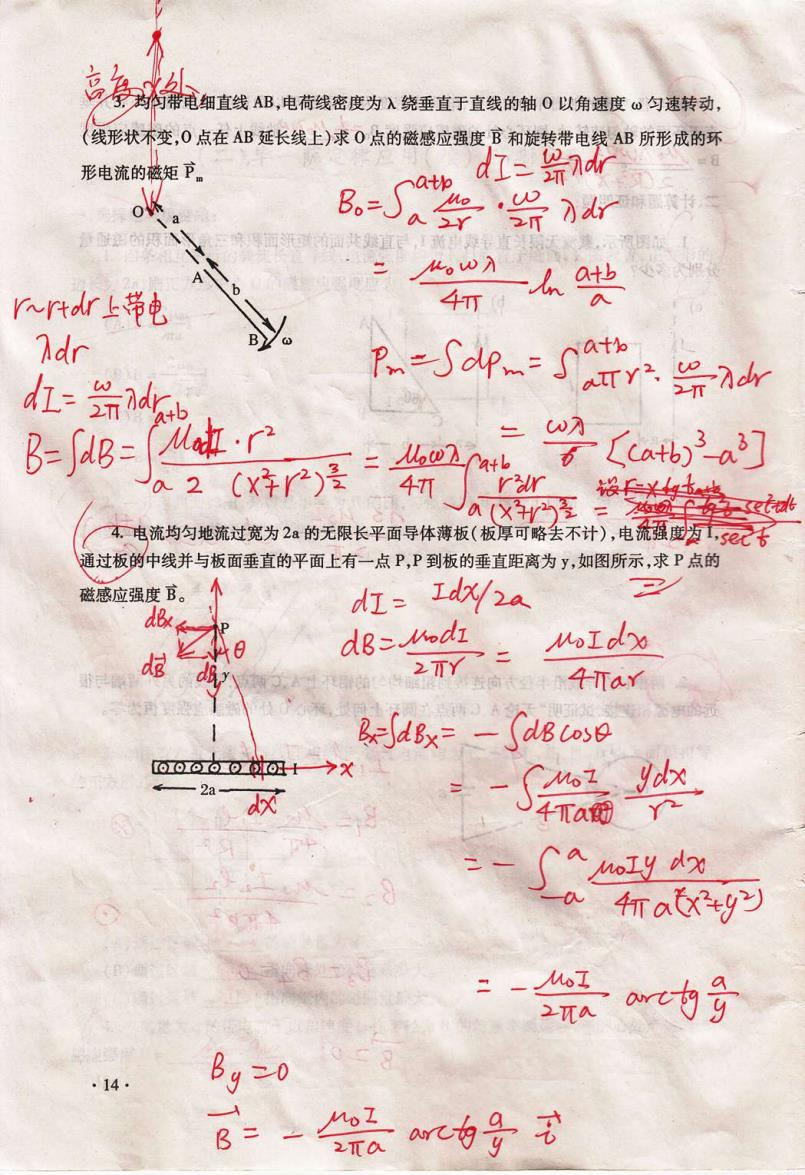 高度X处
3. 均匀带电细直线 AB,电荷线密度为 λ 绕垂直于直线的轴 O 以角速度 ω 匀速转动,
(线形状不变,O 点在 AB 延长线上)求 O 点的磁感应强度 B⃗ 和旋转带电线 AB 所形成的环
形电流的磁矩 P⃗m
dI = ω/2π λdr
B₀ = ∫ₐ^(a+b) μ₀/2r · ω/2π λdr
= μ₀ωλ/4π ln (a+b)/a
O
a
A
b
B
ω
r~r+dr上带电
λdr
dI = ω/2π λdr
Pm = ∫dPm = ∫ₐ^(a+b) πr² · ω/2π λdr
= ωλ/6 [(a+b)³-a³]
B = ∫dB = ∫ₐ^(a+b) μ₀dI·r² / 2(x²+r²)^(3/2) = μ₀ωλ/4π ∫ₐ^(a+b) r²dr/(x²+r²)^(3/2)
4. 电流均匀地流过宽为 2a 的无限长平面导体薄板(板厚可略去不计),电流强度为 I,
通过板的中线并与板面垂直的平面上有一点 P,P 到板的垂直距离为 y,如图所示,求 P 点的
磁感应强度 B⃗。
dI = Idx/2a
dB = μ₀dI/2πr = μ₀Idx/4πar
dBx
P
θ
dB⃗
dBy
y
I
x
2a
dx
Bx = ∫dBx = -∫dBcosθ
= -∫ μ₀I/4πa ydx/r²
= -∫₋ₐ^a μ₀Iy dx/4πa(x²+y²)
= - μ₀I/2πa arctg a/y
By = 0
· 14 ·
B⃗ = - μ₀I/2πa arctg a/y i⃗